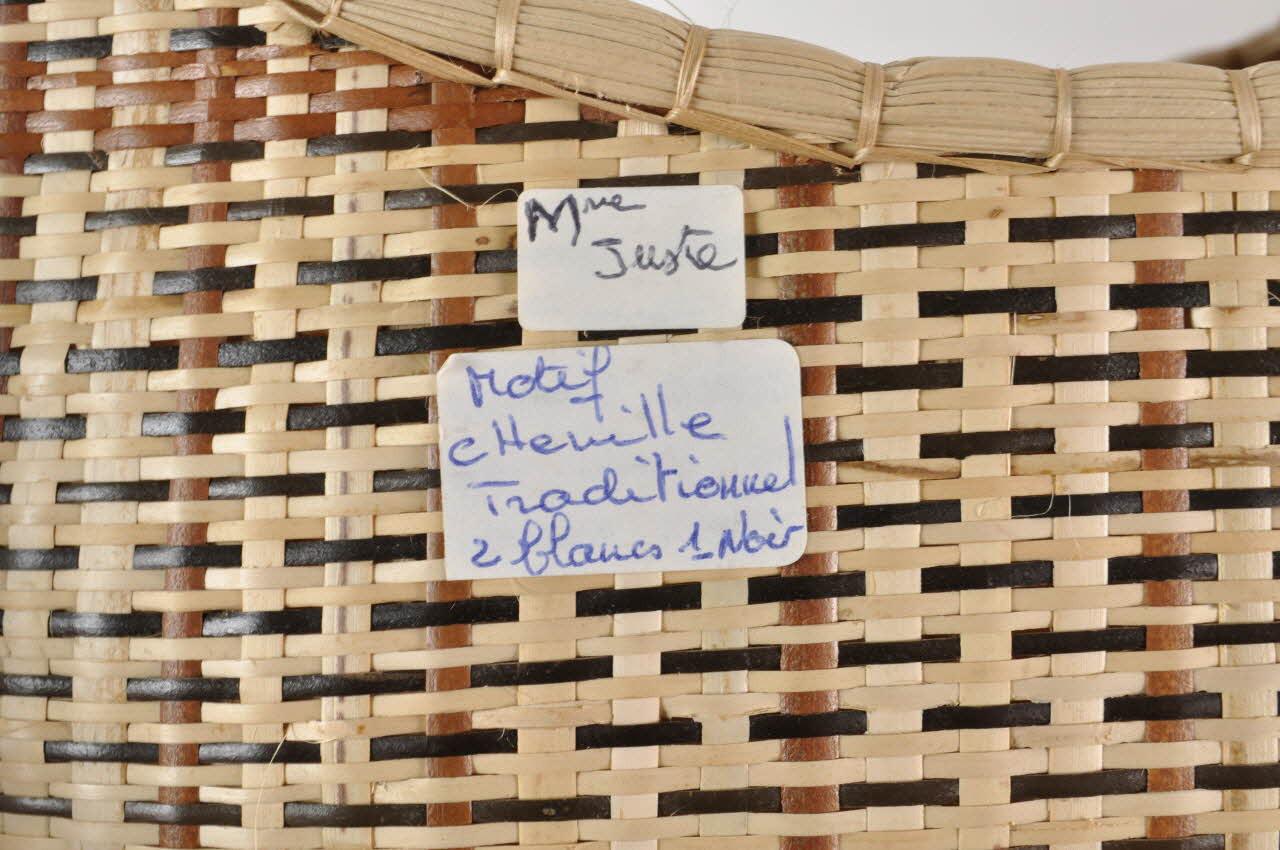 Mme
Juste
Motif
cHenille
Traditionnel
2 blancs 1 Noir